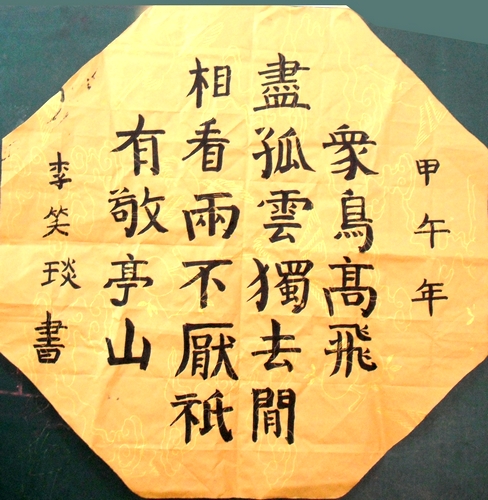 甲午年
衆鳥髙飛
盡孤雲獨去閒
相看兩不厭祇
有敬亭山
李笑琰書